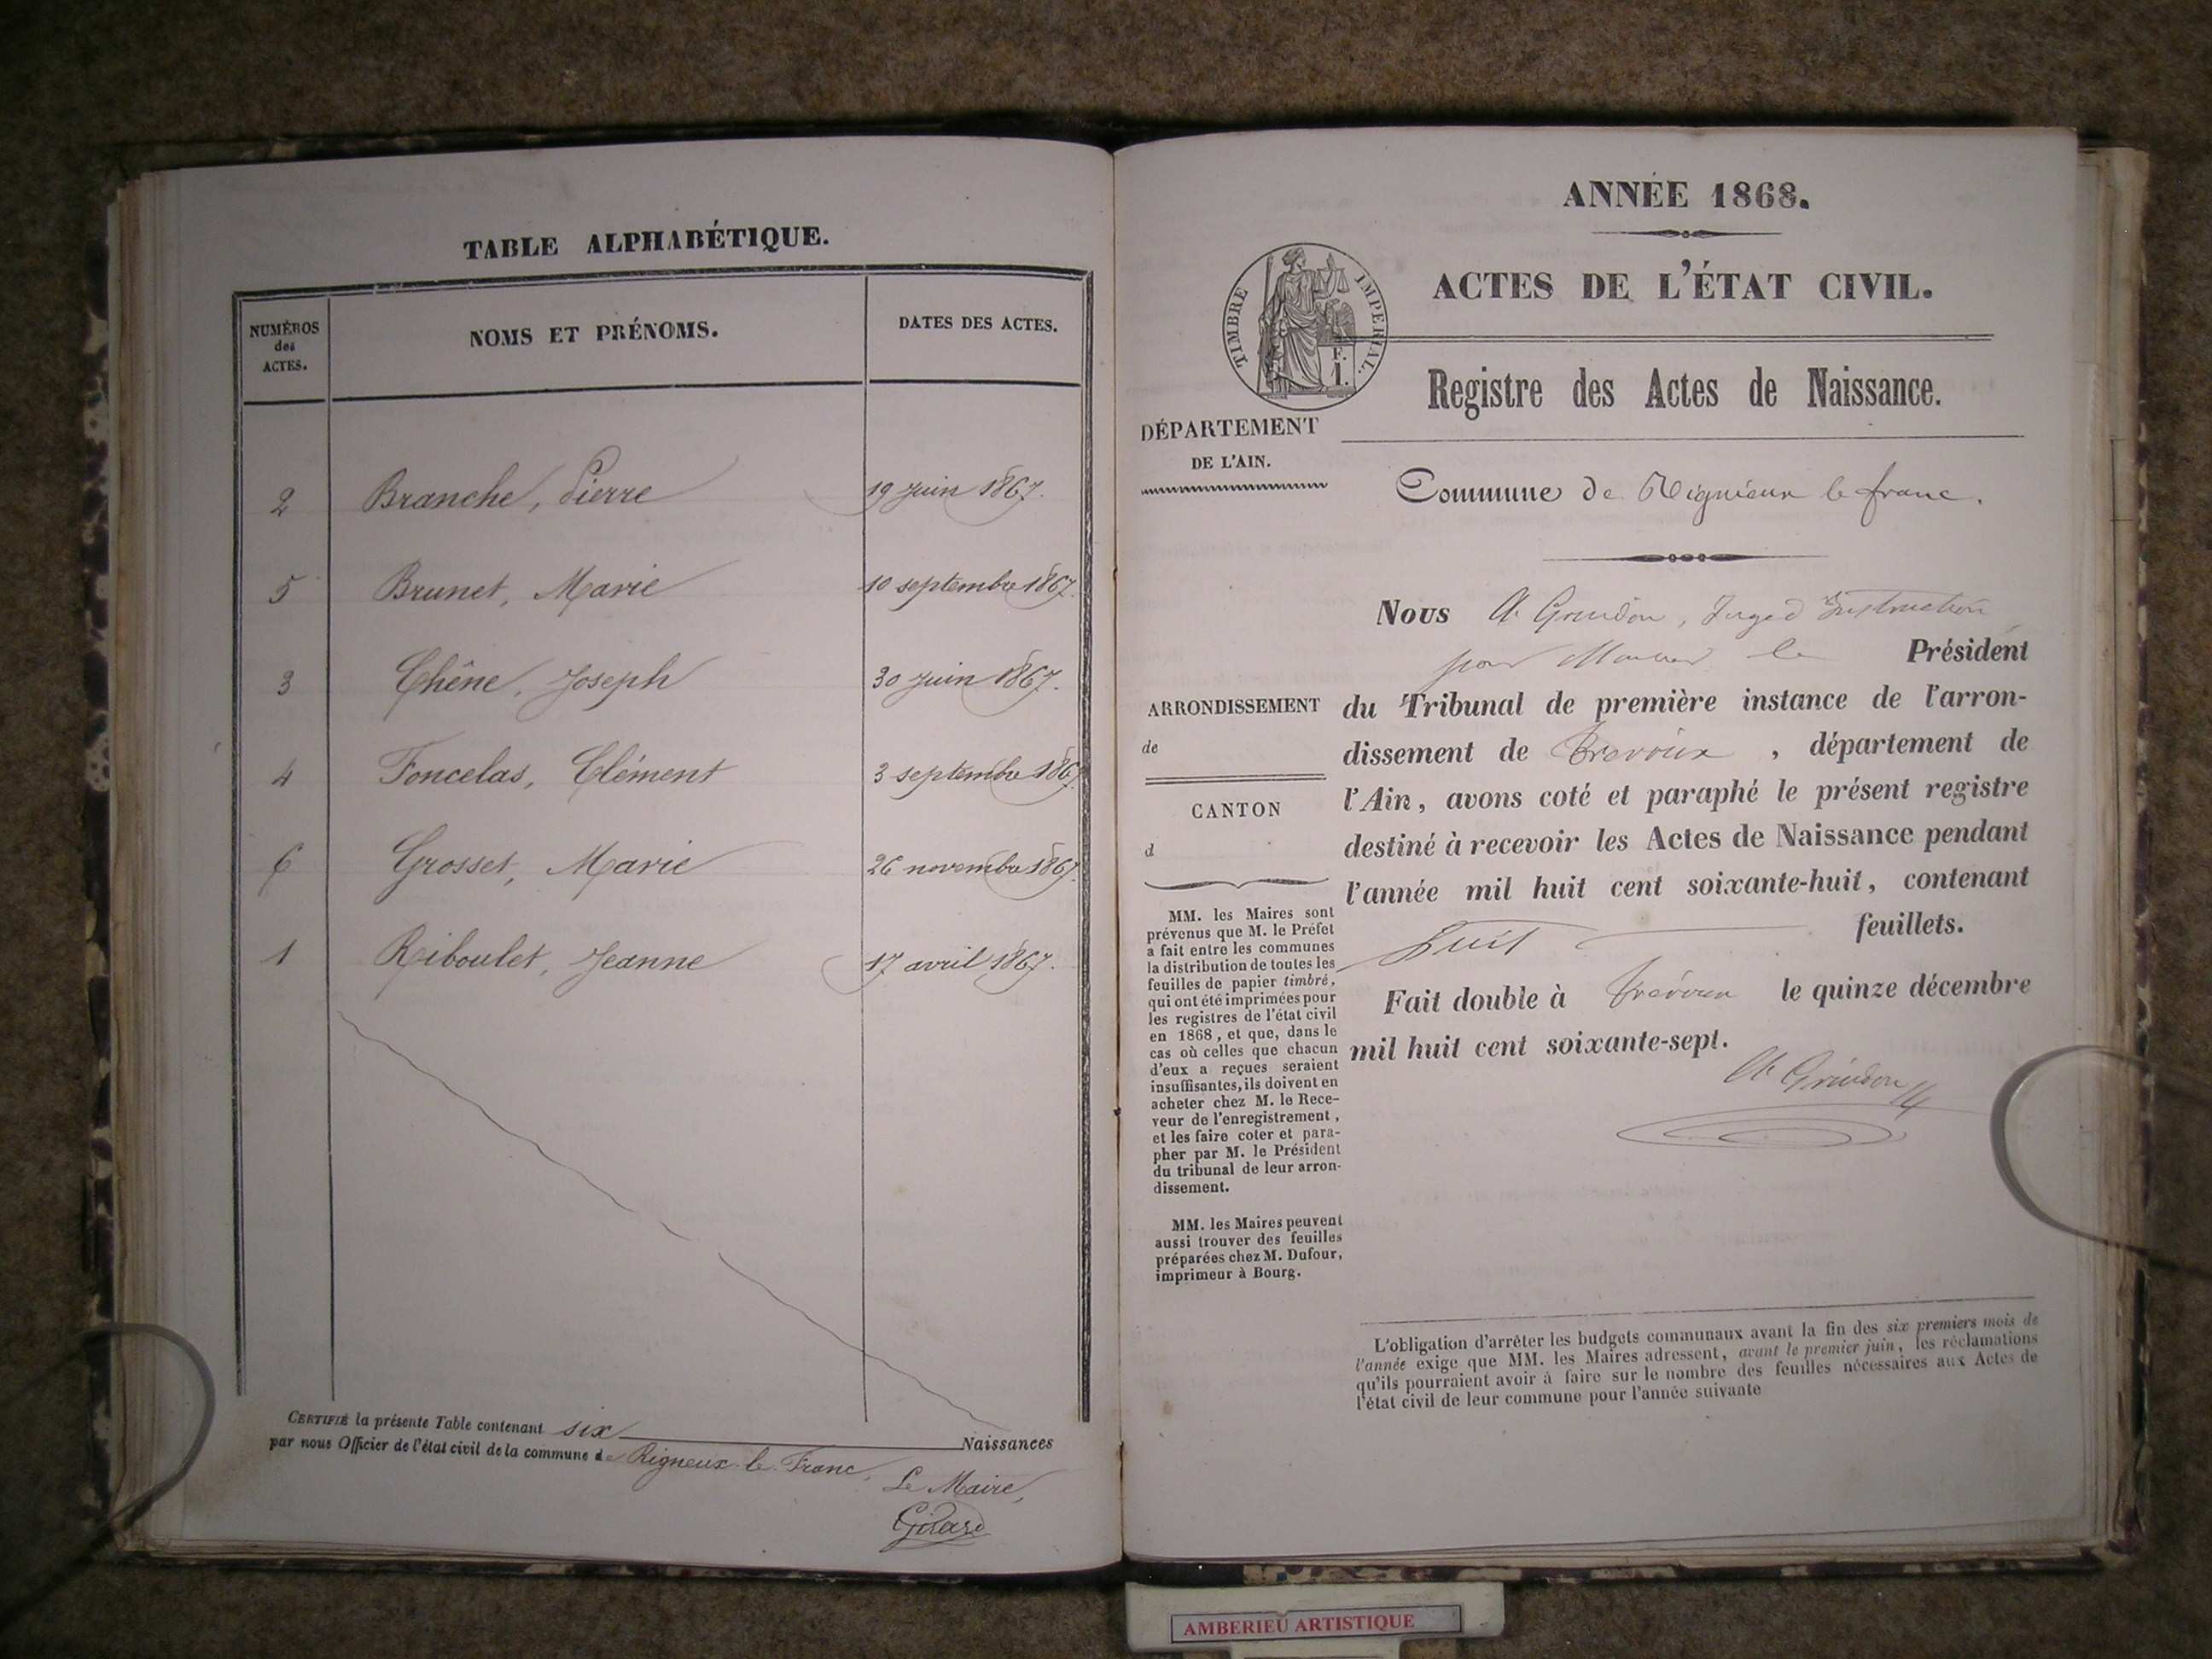 TABLE ALPHABÉTIQUE.
NUMÉROS des ACTES. NOMS ET PRÉNOMS. DATES DES ACTES.
2 Branche, Pierre 19 juin 1867.
5 Brunet, Marie 10 septembre 1867.
3 Chêne, Joseph 30 juin 1867.
4 Foncelas, Clément 3 septembre 1867.
6 Grosset, Marie 26 novembre 1867.
1 Riboulet, Jeanne 17 avril 1867.
CERTIFIÉ la présente Table contenant six Naissances
par nous Officier de l'état civil de la commune de Rigneux-le-Franc,
Le Maire,
Girard
ANNÉE 1868.
ACTES DE L'ÉTAT CIVIL.
TIMBRE IMPERIAL.
F.
1.
Registre des Actes de Naissance.
DÉPARTEMENT
DE L'AIN.
Commune de Rignieux le franc.
ARRONDISSEMENT
de
CANTON
d
MM. les Maires sont
prévenus que M. le Préfet
a fait entre les communes
la distribution de toutes les
feuilles de papier timbré,
qui ont été imprimées pour
les registres de l'état civil
en 1868, et que, dans le
cas où celles que chacun
d'eux a reçues seraient
insuffisantes, ils doivent en
acheter chez M. le Rece-
veur de l'enregistrement,
et les faire coter et para-
pher par M. le Président
du tribunal de leur arron-
dissement.
MM. les Maires peuvent
aussi trouver des feuilles
préparées chez M. Dufour,
imprimeur à Bourg.
Nous Juge d'Instruction
pour le Président
du Tribunal de première instance de l'arron-
dissement de Trevoux, département de
l'Ain, avons coté et paraphé le présent registre
destiné à recevoir les Actes de Naissance pendant
l'année mil huit cent soixante-huit, contenant
huit feuillets.
Fait double à Trévoux le quinze décembre
mil huit cent soixante-sept.
L'obligation d'arrêter les budgets communaux avant la fin des six premiers mois de
l'année exige que MM. les Maires adressent, avant le premier juin, les réclamations
qu'ils pourraient avoir à faire sur le nombre des feuilles nécessaires aux Actes de
l'état civil de leur commune pour l'année suivante
AMBERIEU ARTISTIQUE